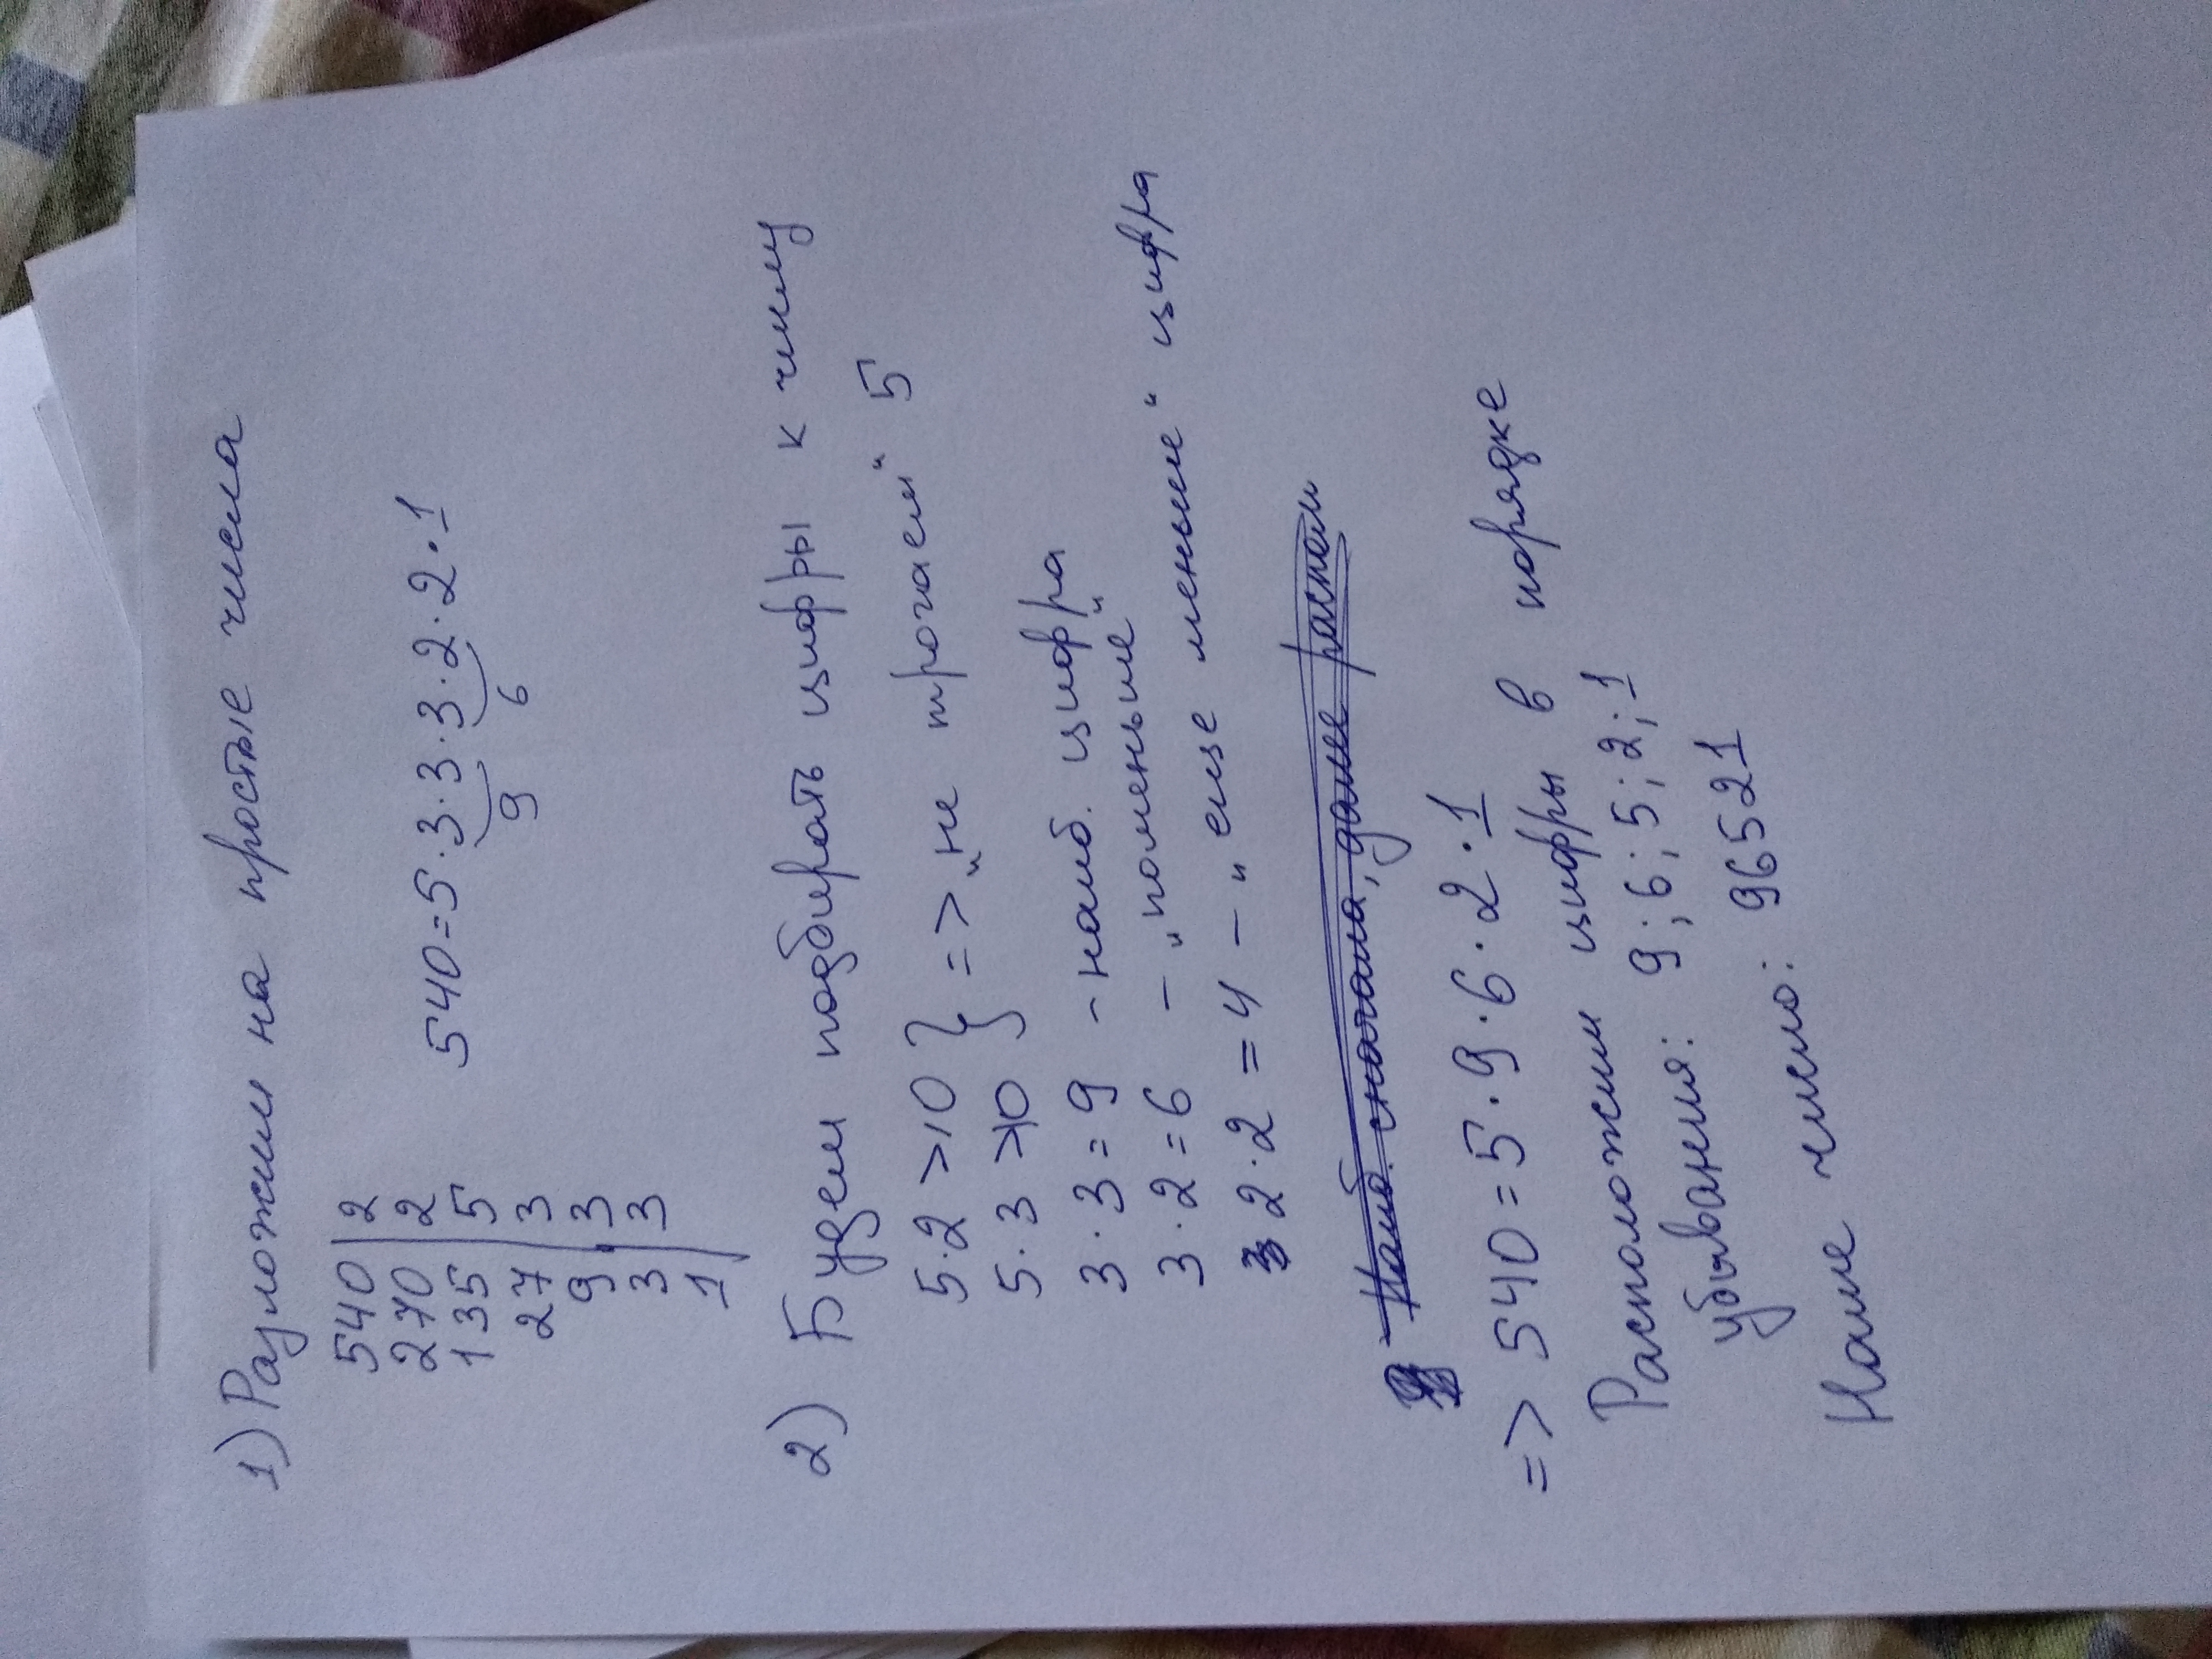 1) Разложим на простые числа
540 | 2
270 | 2
135 | 5
27 | 3
9 | 3
3 | 3
1
540=5·3·3·3·2·2·1
9 6
2) Будем подбирать цифры к числу
5·2 >10 } => „не трогаем“ 5
5·3 >10
3·3=9 - наиб. цифра
3·2=6 - „поменьше“
2·2=4 - „еще меньше“ цифра
Наиб. сначала, далее
=> 540=5·9·6·2·1
Расположим цифры в порядке
убывания: 9; 6; 5; 2; 1
Наше число: 96521